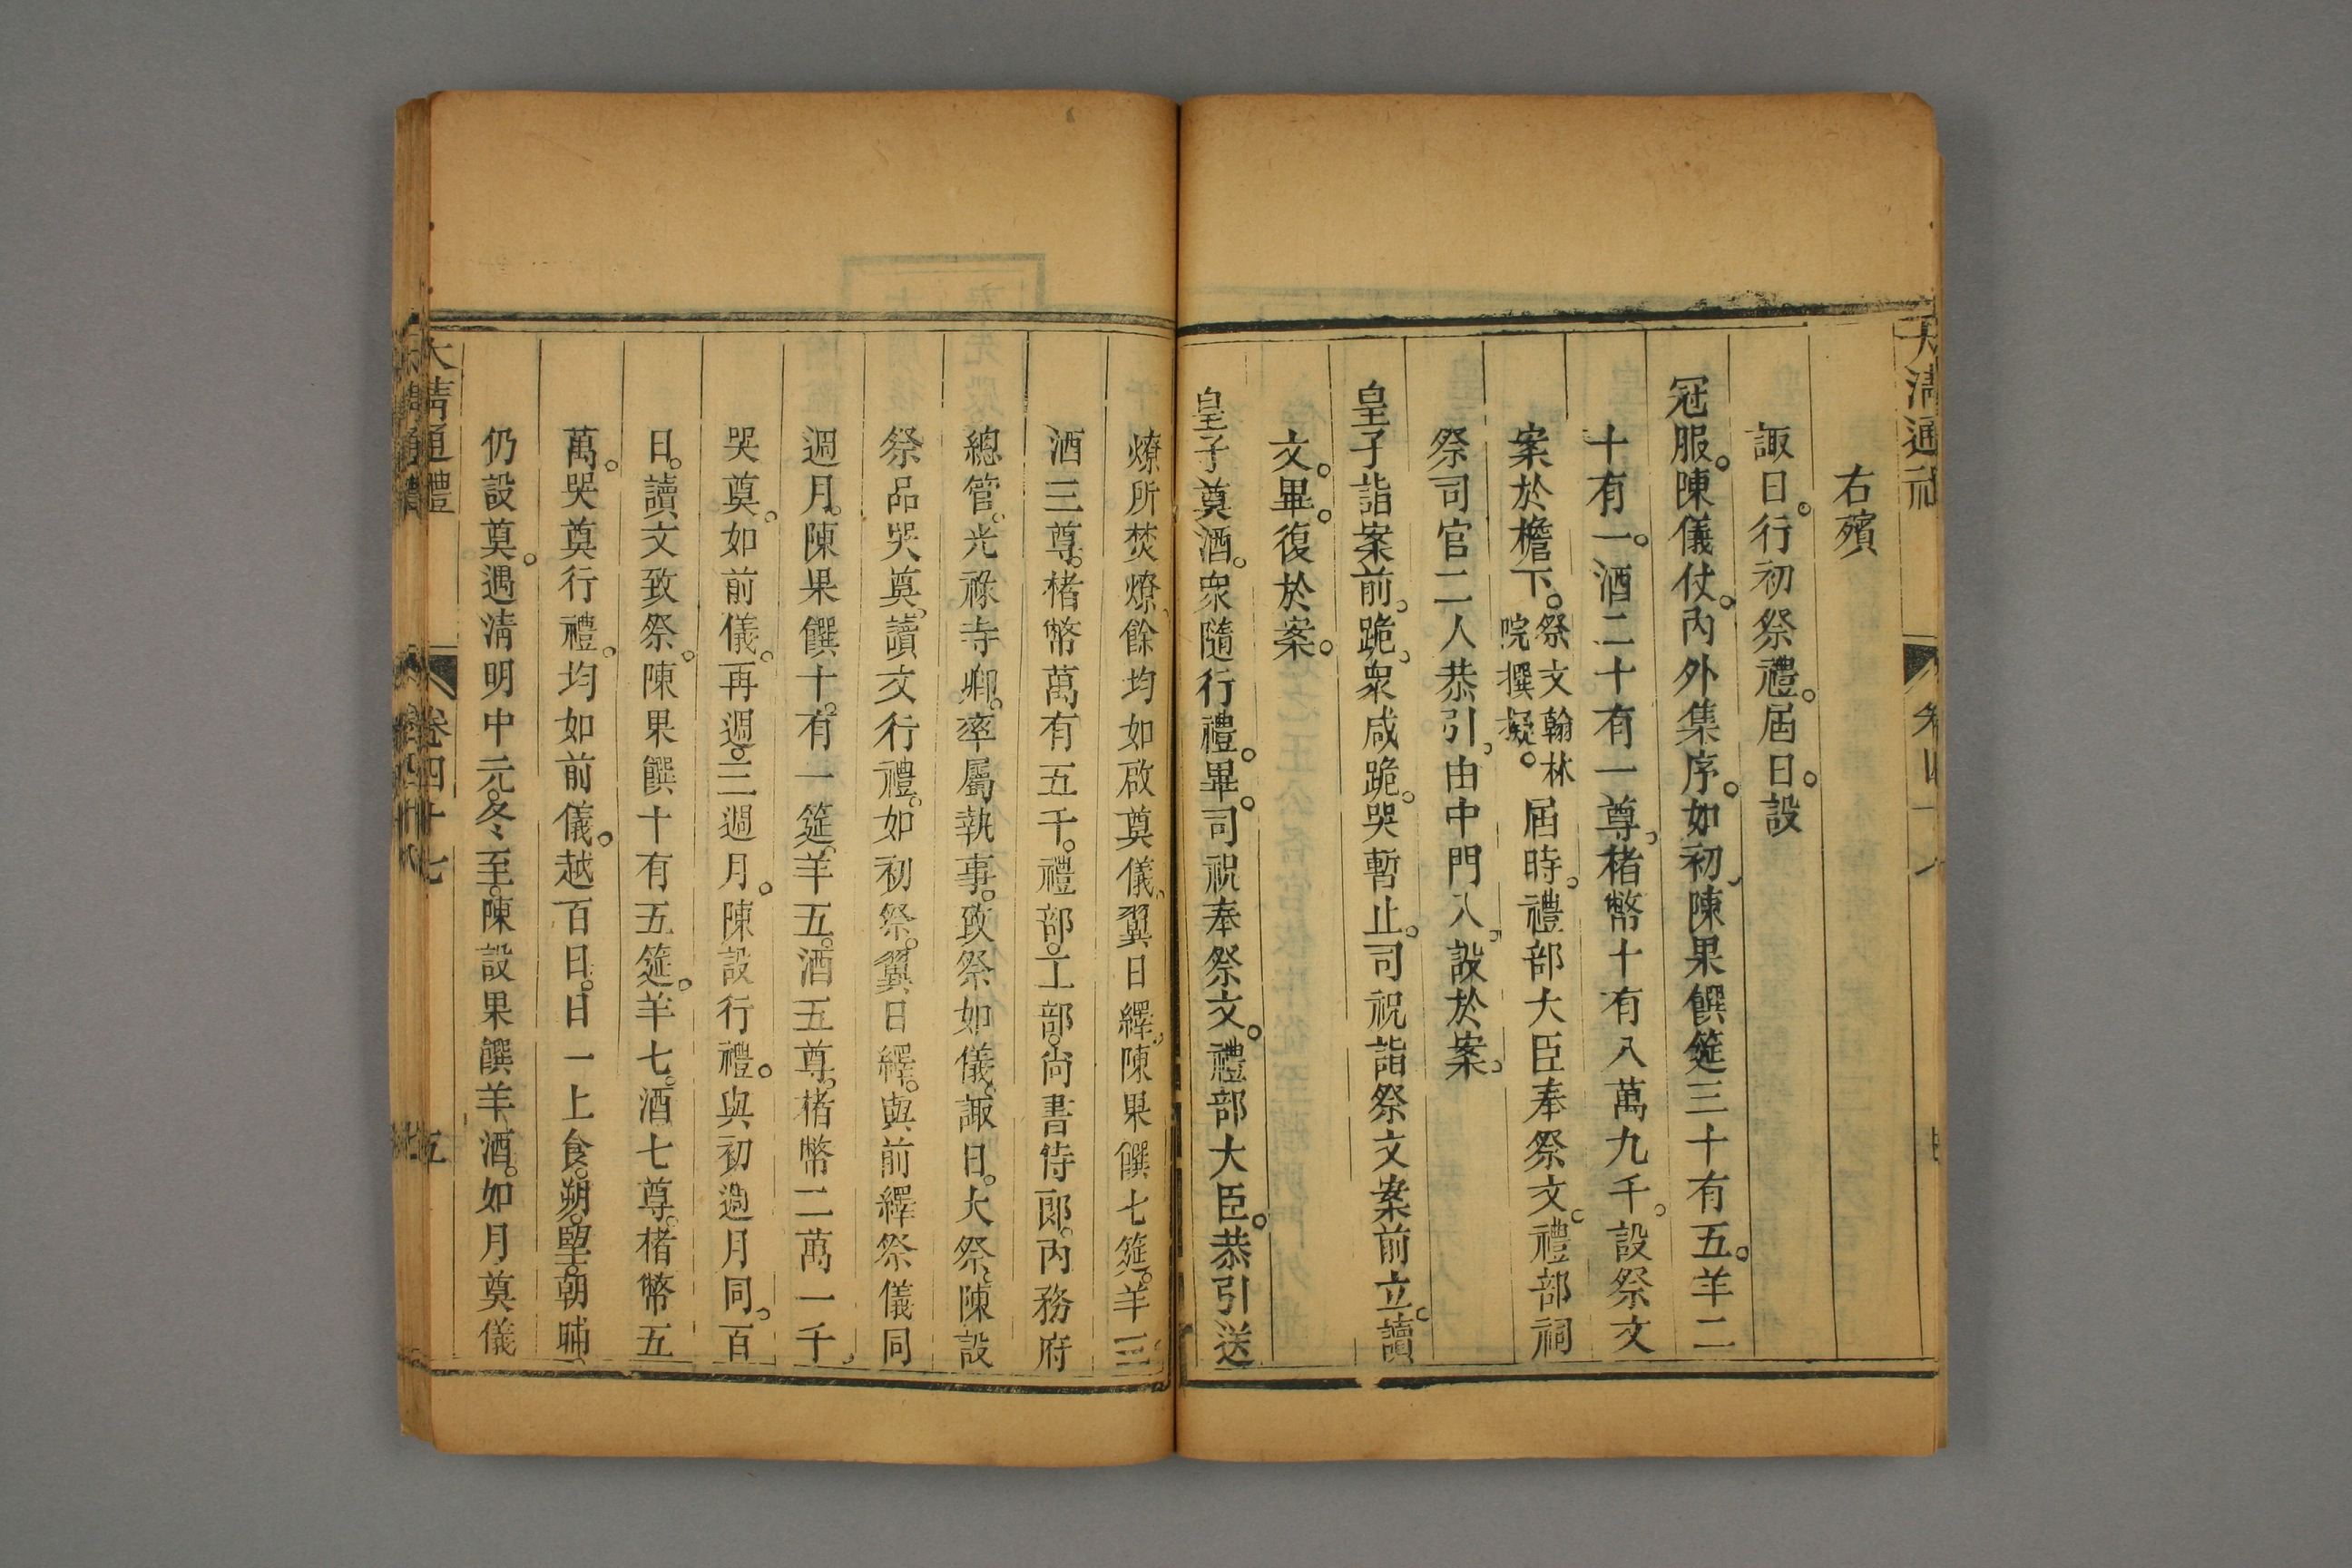 大清通禮
右殯
諏日。行初祭禮。屆日。設
冠服。陳儀仗。內外集序。如初。陳果饌筵三十有五。羊二
十有一。酒二十有一尊。楮幣十有八萬九千。設祭文
案於檐下。祭文翰林院撰擬。屆時。禮部大臣奉祭文。禮部祠
祭司官二人恭引。由中門入。設於案。
皇子詣案前。跪。衆咸跪。哭暫止。司祝詣祭文案前立。讀
文。畢。復於案。
皇子奠酒。衆隨行禮。畢。司祝奉祭文。禮部大臣。恭引送
燎所焚燎。餘均如啟奠儀。翼日繹。陳果饌七筵。羊三
酒三尊。楮幣萬有五千。禮部。工部。尚書侍郎。內務府
總管。光祿寺卿。率屬執事。致祭如儀。諏日。大祭。陳設
祭品哭奠。讀文行禮。如初祭。翼日繹。與前繹祭儀同
週月。陳果饌十。有一筵。羊五。酒五尊。楮幣二萬一千。
哭奠。如前儀。再週。三週月。陳設行禮。與初週月同。百
日。讀文致祭。陳果饌十有五筵。羊七。酒七尊。楮幣五
萬。哭奠行禮。均如前儀。越百日。日一上食。朔。望。朝晡
仍設奠。遇淸明中元。冬至。陳設果饌羊酒。如月奠儀
大清通禮
卷四十七
五